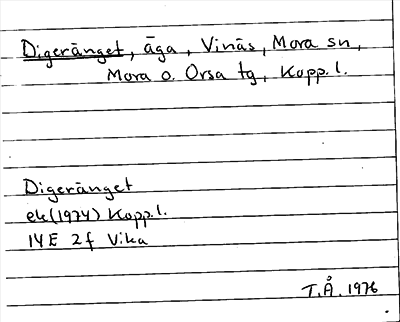 Digeränget, äga, Vinäs, Mora sn,
Mora o. Orsa tg, Kopp. l.
Digeränget
ek (1974) Kopp. l.
14E 2f Vika
T.Å. 1976